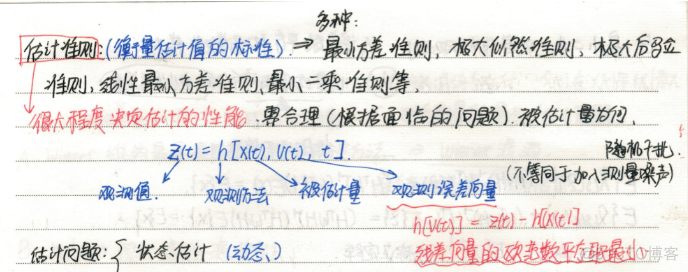 多种:
估计准则:(衡量估计值的标准). ⇒ 最小方差准则, 极大似然准则, 极大后验
准则, 线性最小方差准则, 最小二乘准则等,
很大程度决定估计的性能. 要合理(根据面临的问题). 被估计量为
z(t) = h[x(t), v(t), t]. 随机干扰.
观测值. 观测方法 被估计量 观测误差向量 (不等同于加入测量噪声)
h[v(t)] = z(t) - h[x(t)]
估计问题: { 状态估计 (动态、) 残差向量的欧式数平方取最小